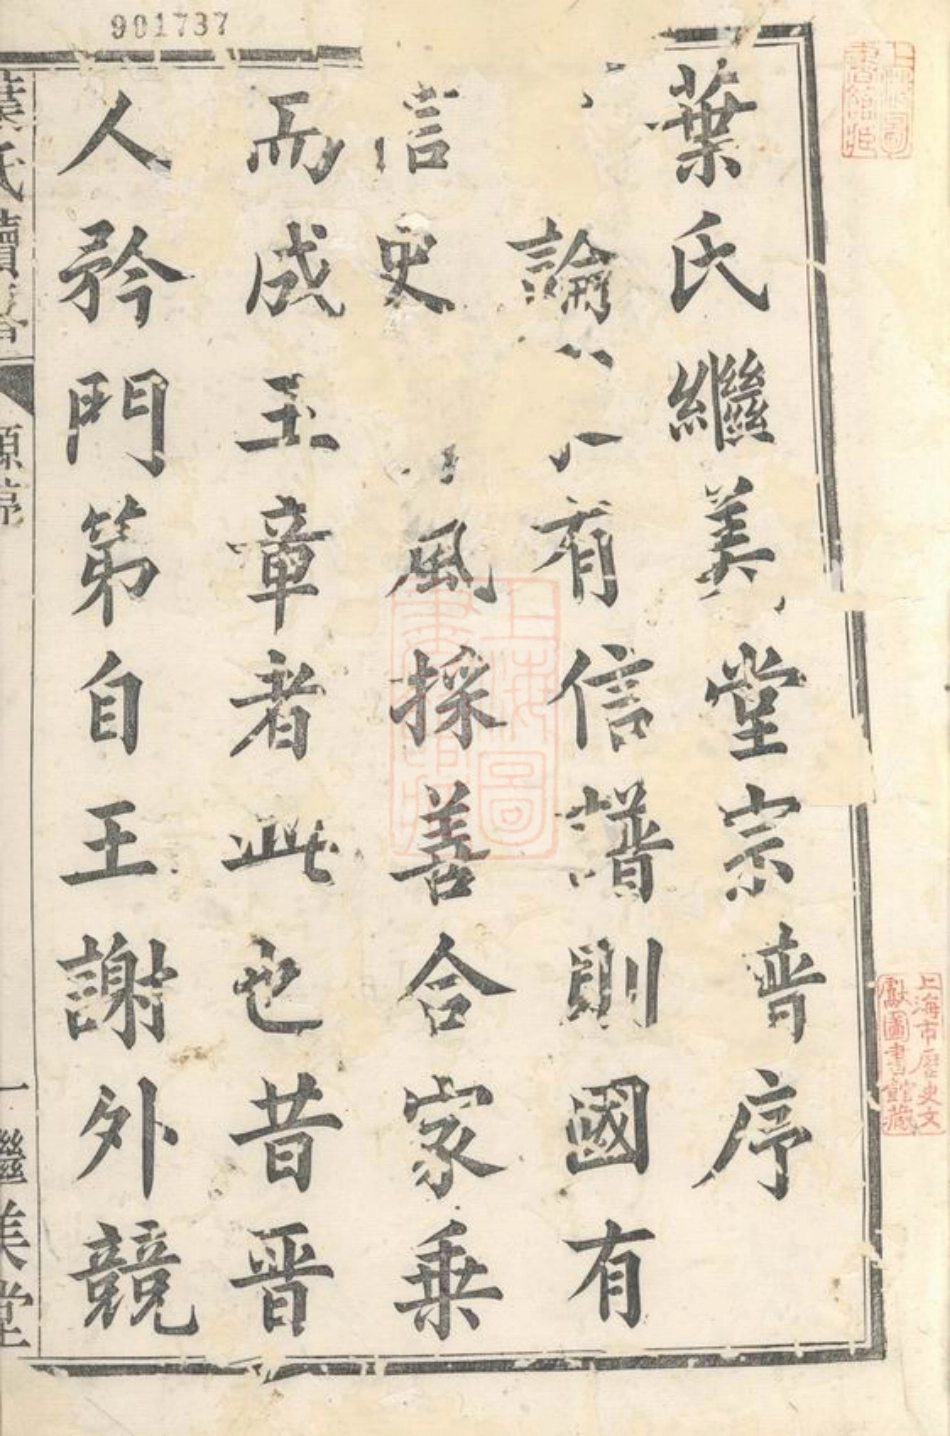 901737
葉氏繼美堂宗普序
論有信譜則國有
信史風採善合家乗
而成玉章者此也昔晋
人矜門第自王謝外競
葉氏續譜
源亭
一 繼美堂
上海圖書館藏
上海市歷史文獻圖書館藏
上海圖書館藏